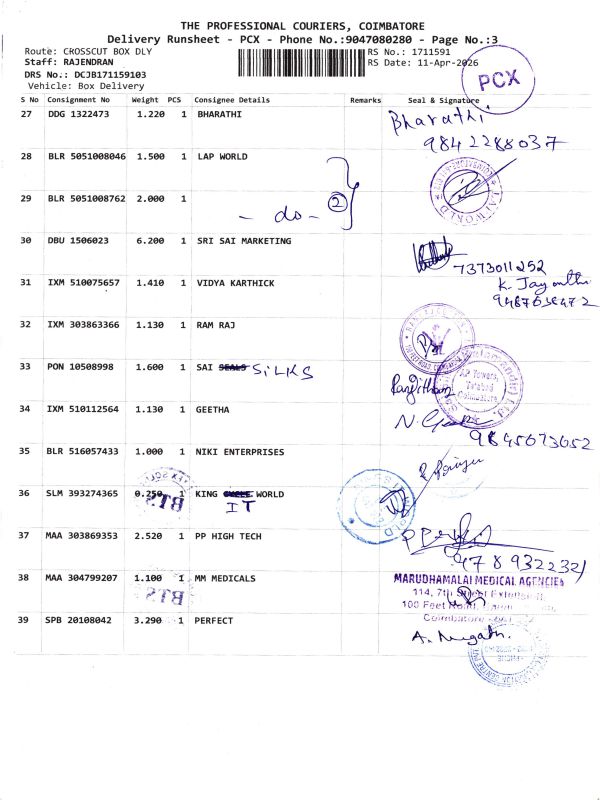 THE PROFESSIONAL COURIERS, COIMBATORE
Delivery Runsheet - PCX - Phone No.:9047080280 - Page No.:3
Route: CROSSCUT BOX DLY RS No.: 1711591
Staff: RAJENDRAN RS Date: 11-Apr-2026
DRS No.: DCJB171159103
Vehicle: Box Delivery
PCX
S No Consignment No Weight PCS Consignee Details Remarks Seal & Signature
27 DDG 1322473 1.220 1 BHARATHI Bharathi
9842288037
28 BLR 5051008046 1.500 1 LAP WORLD
29 BLR 5051008762 2.000 1
- do - 2
30 DBU 1506023 6.200 1 SRI SAI MARKETING
7373011252
31 IXM 510075657 1.410 1 VIDYA KARTHICK K. Jayanthi
32 IXM 303863366 1.130 1 RAM RAJ
33 PON 10508998 1.600 1 SAI SEALS SiLKS
34 IXM 510112564 1.130 1 GEETHA
9845673652
35 BLR 516057433 1.000 1 NIKI ENTERPRISES
36 SLM 393274365 0.250 1 KING CYCLE WORLD
IT
BTS
37 MAA 303869353 2.520 1 PP HIGH TECH
9789322321
38 MAA 304799207 1.100 1 MM MEDICALS MARUDHAMALAI MEDICAL AGENCIES
BTS
114, 7th Street Extension,
100 Feet Road,
Coimbatore
39 SPB 20108042 3.290 1 PERFECT